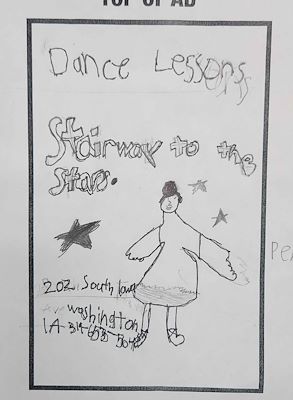 TOP OF AD
Dance Lessons
Stairway to the
Stars.
202 South Iowa
Washington
IA-319-653-